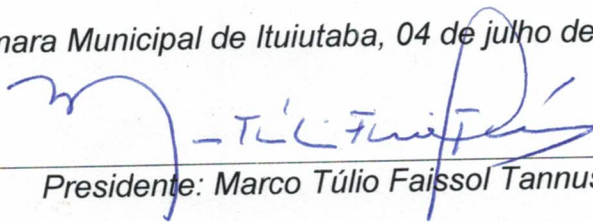 mara Municipal de Ituiutaba, 04 de julho de
Presidente: Marco Túlio Faissol Tannus